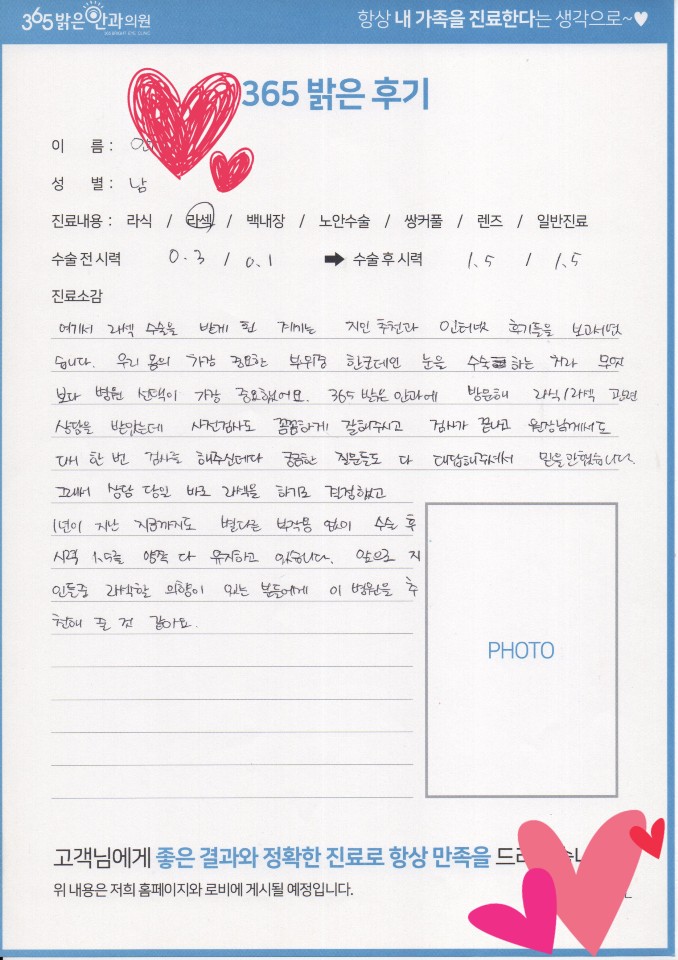 365밝은안과의원
항상 내 가족을 진료한다는 생각으로~♥
365 밝은 후기
이 름 :
성 별 : 남
진료내용 : 라식 / 라섹 / 백내장 / 노안수술 / 쌍커풀 / 렌즈 / 일반진료
수술 전 시력 0.3 / 0.1 ➡ 수술 후 시력 1.5 / 1.5
진료소감
여기서 라섹 수술을 받게 된 계기는 지인 추천과 인터넷 후기들을 보고서였
습니다. 우리 몸의 가장 중요한 부위중 한군데인 눈을 수술 하는 거라 무엇
보다 병원 선택이 가장 중요했어요. 365 밝은 안과에 방문해 라식/라섹 관련
상담을 받았는데 사전검사도 꼼꼼하게 잘해주시고 검사가 끝나고 원장님께서도
다시 한 번 검사를 해주신데다 궁금한 질문들도 다 대답해주셔서 믿을만했습니다.
그래서 상담 당일 바로 라섹을 하기로 결정했고
1년이 지난 지금까지도 별다른 부작용 없이 수술 후
시력 1.5를 양쪽 다 유지하고 있습니다. 앞으로 지
인들중 라섹할 의향이 있는 분들에게 이 병원을 추
천해 줄 것 같아요.
PHOTO
고객님에게 좋은 결과와 정확한 진료로 항상 만족을
위 내용은 저희 홈페이지와 로비에 게시될 예정입니다.